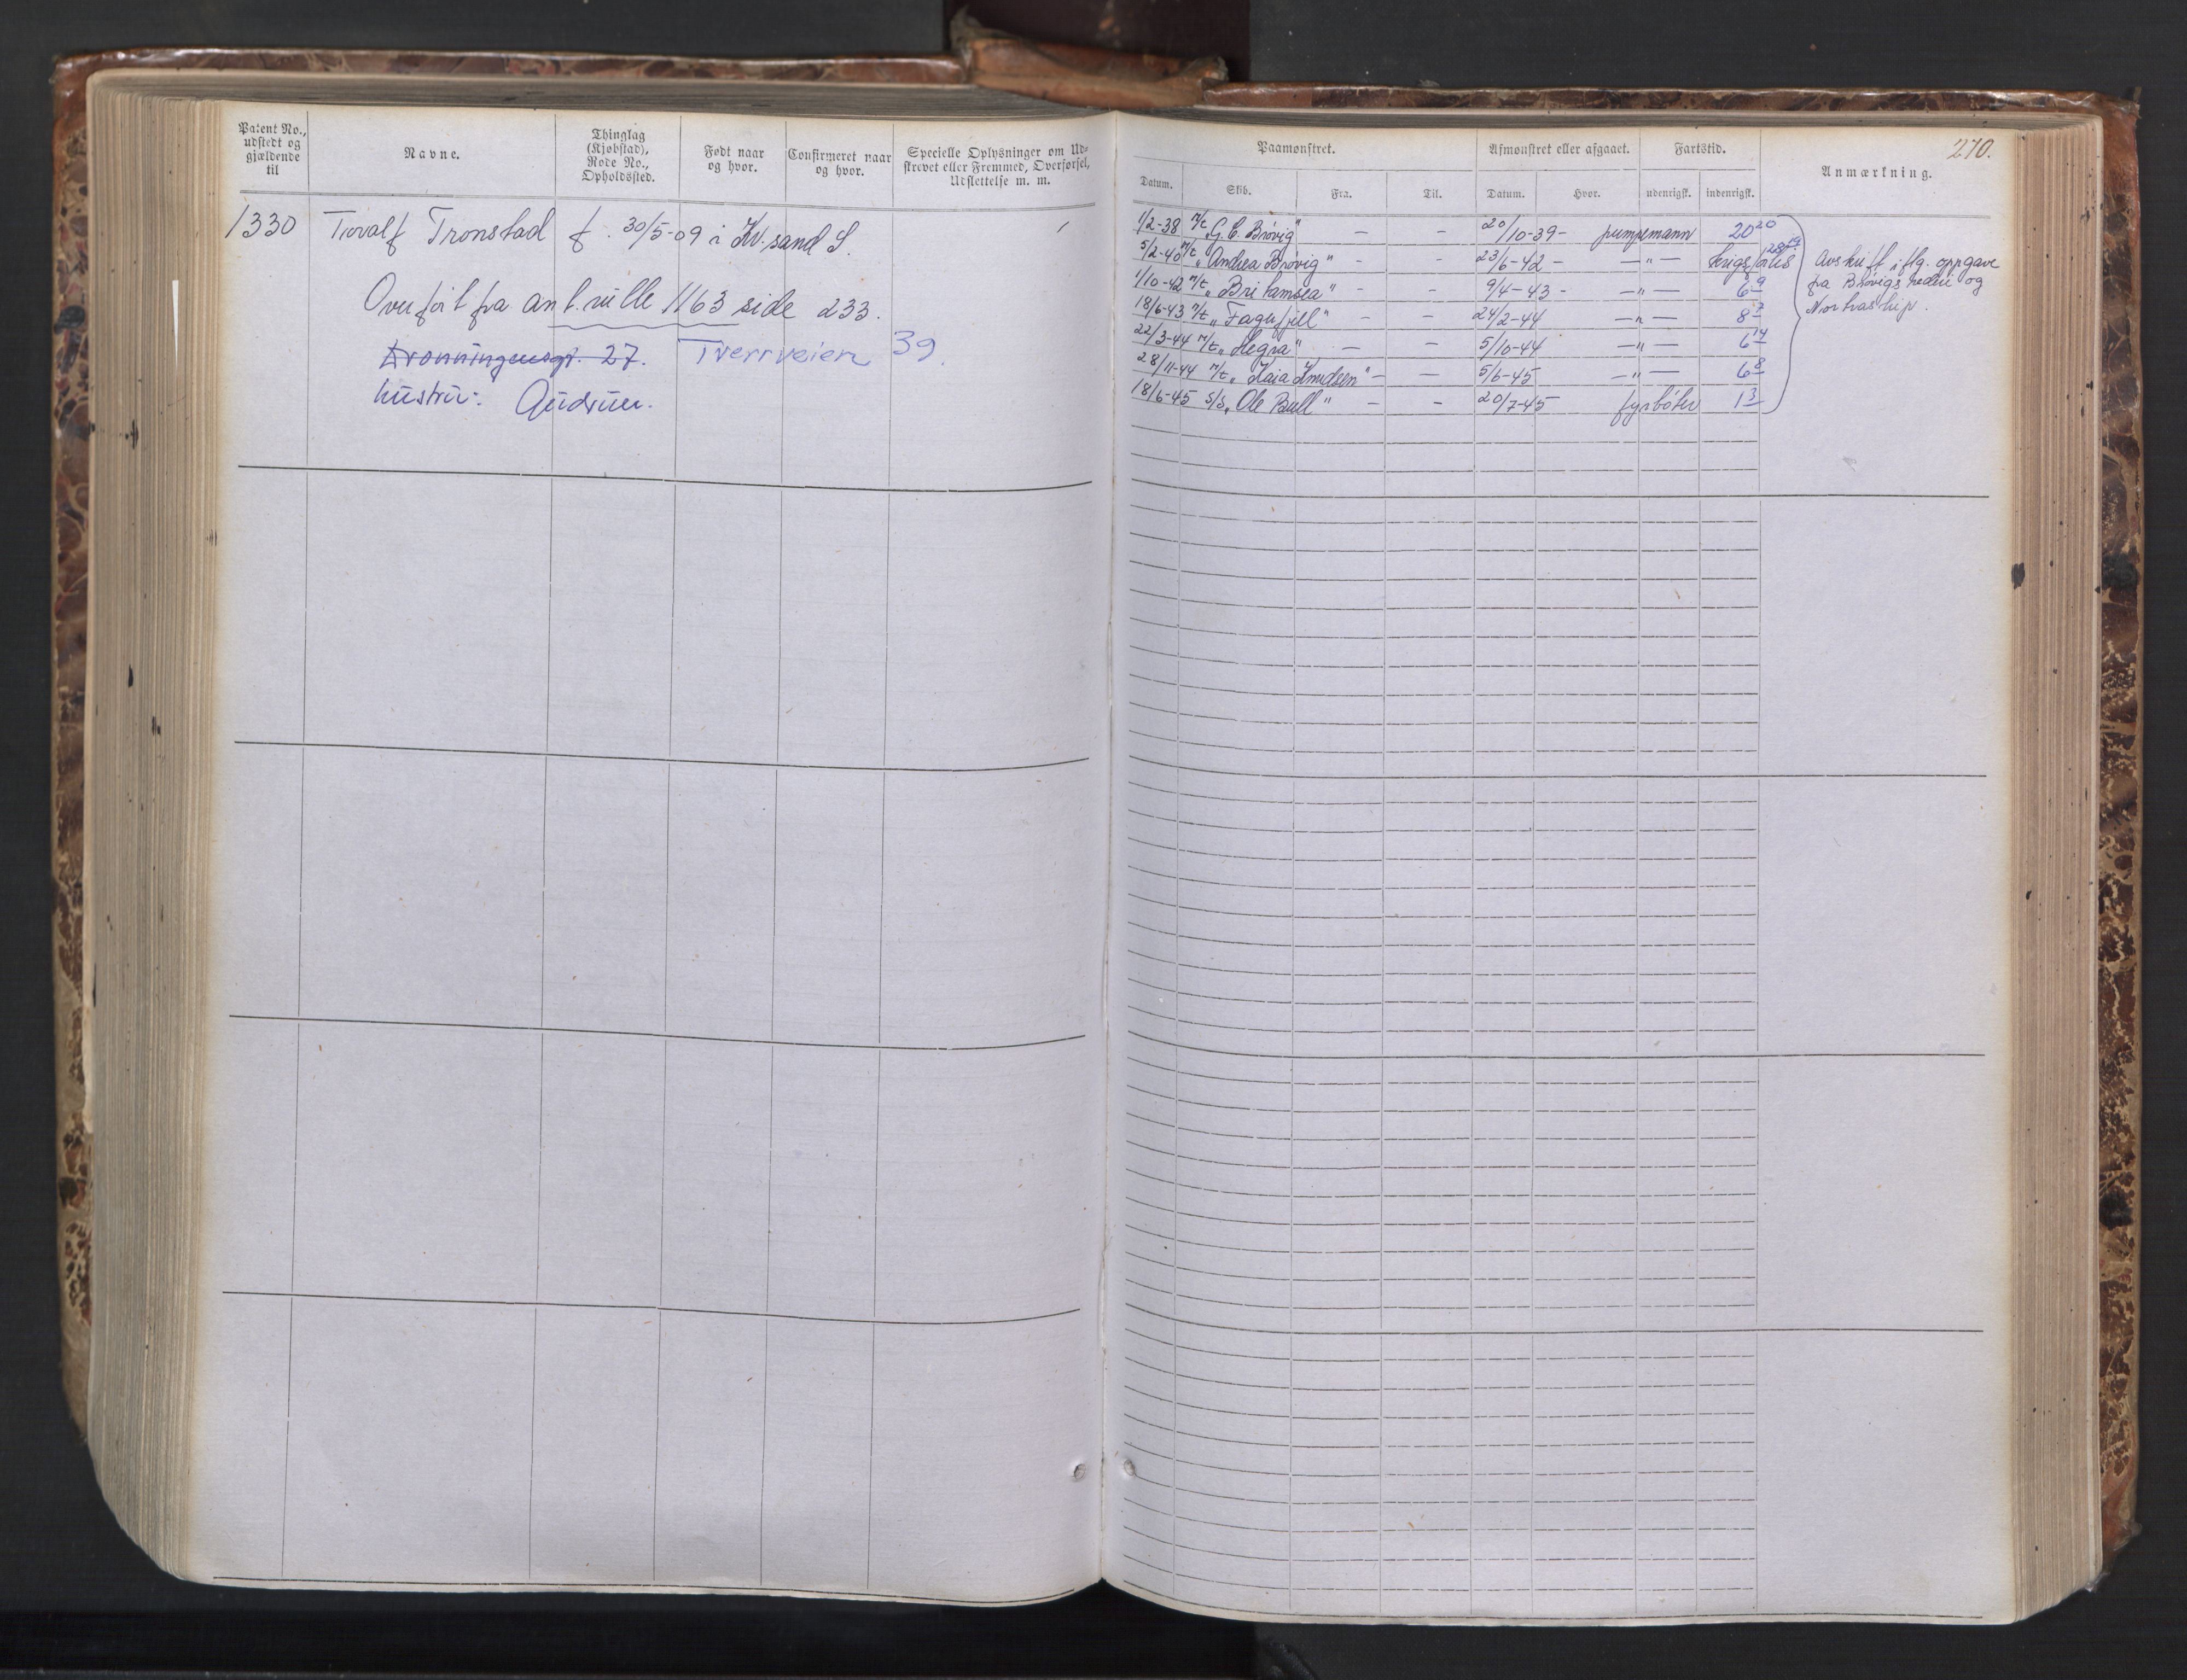 Patent No., udstedt og gjældende til
Navne.
Thinglag (Kjøbstad), Rode No., Opholdssted.
Født naar og hvor.
Confirmeret naar og hvor.
Specielle Oplysninger om Udskrevet eller Fremmed, Overførsel, Udslettelse m. m.
1330 Toralf Tronstad f. 30/5-09 i Kr.sand S.
Overført fra an l. rulle 1163 side 233.
Dronningensgt. 27. Tverrveien 39.
hustru: Gudrun.
Paamønstret. Afmønstret eller afgaaet. Fartstid. Anmærkning. 270.
Datum. Skib. Fra. Til. Datum. Hvor. udenrigsk. indenrigsk.
1/2-38 M/t „G. C. Brøvig" - - 20/10-39 - pumpemann 20 20
5/2-40 M/t „Andrea Brøvig" - - 23/6-42 - -"- krigsforlis 28 19
1/10-42 M/t „Britamsea" - - 9/4-43 - -"- 6 9
18/6-43 M/t „Fagerfjell" - - 24/2-44 -"- 8 7
22/3-44 M/t „Hegra" - - 5/10-44 -"- 6 14
28/11-44 M/t „Kaia Knudsen" - - 5/6-45 -"- 6 8
18/6-45 S/s „Ole Bull" - - 20/7-45 fyrbøter 1 3
Avskrift iflg. oppgave
fra Brøvigs rederi og
Nortraship.